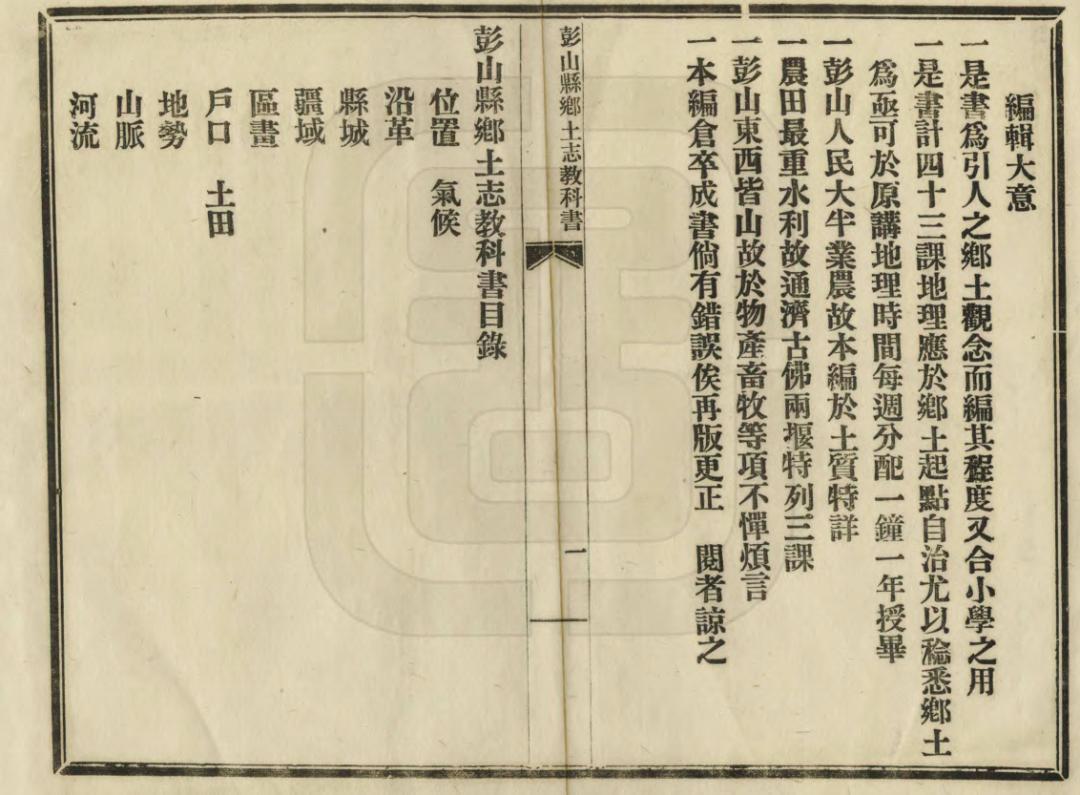 編輯大意
一是書爲引人之鄉土觀念而編其程度又合小學之用
一是書計四十三課地理應於鄉土起點自治尤以稔悉鄉土
爲亟可於原講地理時間每週分配一鐘一年授畢
一彭山人民大半業農故本編於土質特詳
一農田最重水利故通濟古佛兩堰特列三課
一彭山東西皆山故於物產畜牧等項不憚煩言
一本編倉卒成書倘有錯誤俟再版更正　閱者諒之
彭山縣鄉土志教科書　一
彭山縣鄉土志教科書目錄
位置　氣候
沿革
縣城
疆域
區畫
戶口　土田
地勢
山脈
河流